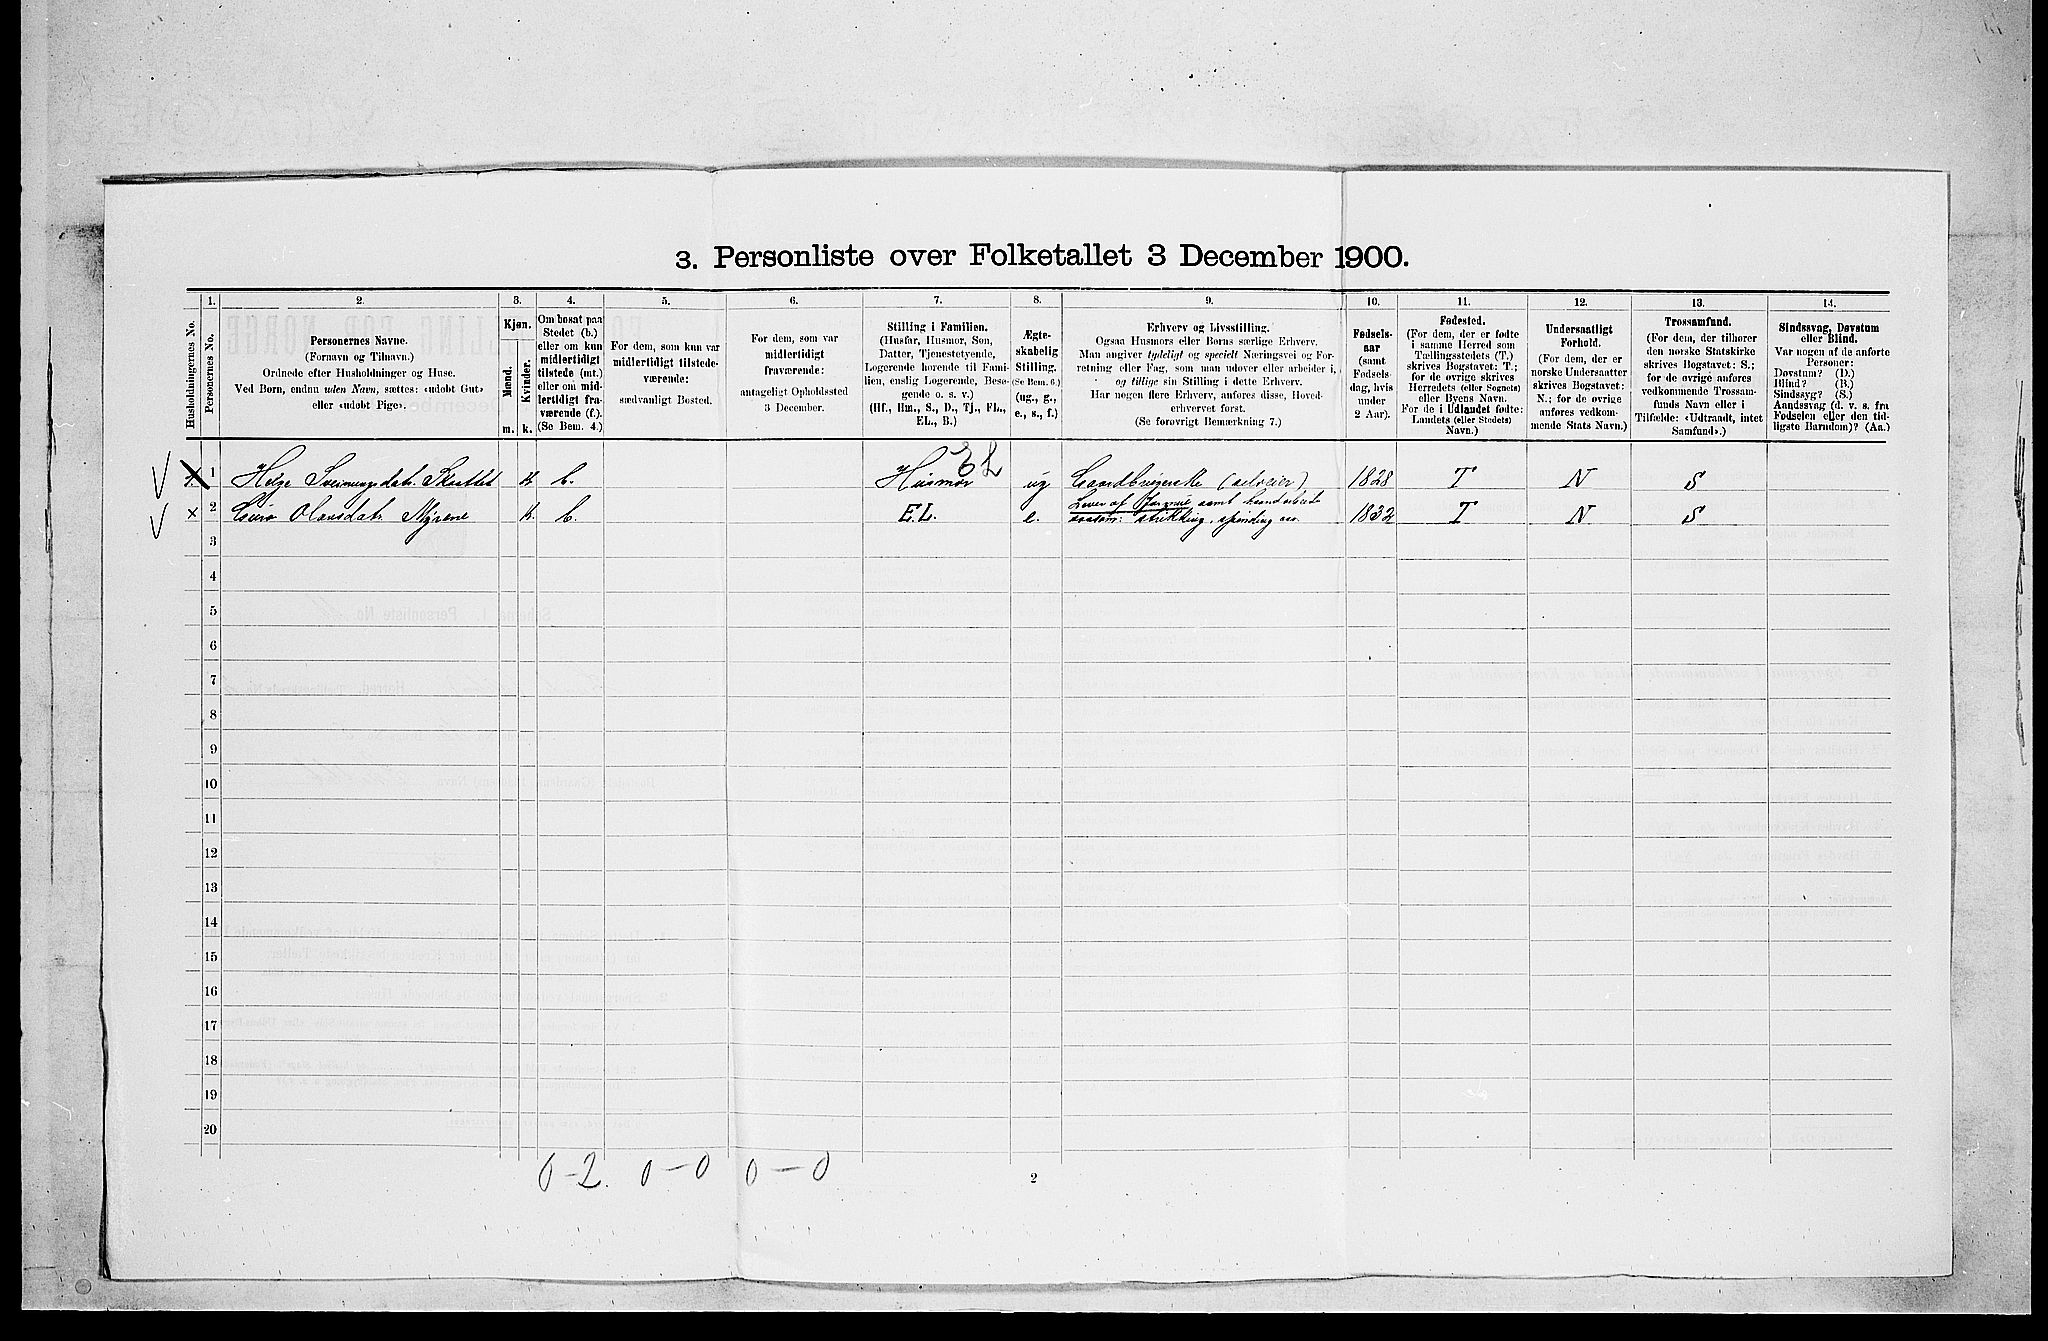 3. Personliste over Folketallet 3 December 1900.
1. 2. 3. 4. 5. 6. 7. 8. 9. 10. 11. 12. 13. 14.
Husholdningernes No.
Personernes No.
Personernes Navne.
(Fornavn og Tilnavn.)
Ordnede efter Husholdninger og Huse.
Ved Børn, endnu uden Navn, sættes: «udøbt Gut»
eller «udøbt Pige».
Kjøn.
Mænd.
Kvinder.
m. k.
Om bosat paa
Stedet (b.)
eller om kun
midlertidigt
tilstede (mt.)
eller om mid-
lertidigt fra-
værende (f.)
(Se Bem. 4.)
For dem, som kun var
midlertidigt tilstede-
værende:
sædvanligt Bosted.
For dem, som var
midlertidigt
fraværende:
antageligt Opholdssted
3 December.
Stilling i Familien.
(Husfar, Husmor, Søn,
Datter, Tjenestetyende,
Logerende hørende til Fami-
lien, enslig Logerende, Besø-
gende o. s. v.)
(Hf., Hm., S., D., Tj., FL.,
EL., B.)
Ægte-
skabelig
Stilling.
(Se Bem. 6.)
(ug., g.,
e., s., f.)
Erhverv og Livsstilling.
Ogsaa Husmors eller Børns særlige Erhverv.
Man angiver tydeligt og specielt Næringsvei og For-
retning eller Fag, som man udøver eller arbeider i,
og tillige sin Stilling i dette Erhverv.
Har nogen flere Erhverv, anføres disse, Hoved-
erhvervet først.
(Se forøvrigt Bemærkning 7.)
Fødsels-
aar
(samt
Fødsels-
dag, hvis
under
2 Aar).
Fødested.
(For dem, der er fødte
i samme Herred som
Tællingsstedets (T.)
skrives Bogstavet: T.;
for de øvrige skrives
Herredets (eller Sognets)
eller Byens Navn.
For de i Udlandet fødte:
Landets (eller Stedets)
Navn.)
Undersaatligt
Forhold.
(For dem, der er
norske Undersaatter
skrives Bogstavet:
N.; for de øvrige
anføres vedkom-
mende Stats Navn.)
Trossamfund.
(For dem, der tilhører
den norske Statskirke
skrives Bogstavet: S.;
for de øvrige anføres
vedkommende Trossam-
funds Navn eller i
Tilfælde: «Udtraadt, intet
Samfund».)
Sindssvag, Døvstum
eller Blind.
Var nogen af de anførte
Personer:
Døvstum? (D.)
Blind? (B.)
Sindssyg? (S.)
Aandssvag (d. v. s. fra
Fødselen eller den tid-
ligste Barndom)? (Aa.)
EL
1 Helge Sveinungsdatr. Skottet k b. Husmor ug Gaardbrugerske (selveier) 1828 T N S
Lever af samt haandarbeide
2 Olavsdatr. Myrene k. b. E.L. e. saasom: strikking, spinding 1832 T N S
3
4
5
6
7
8
9
10
11
12
13
14
15
16
17
18
19
20
0-2. 0-0 0-0
2